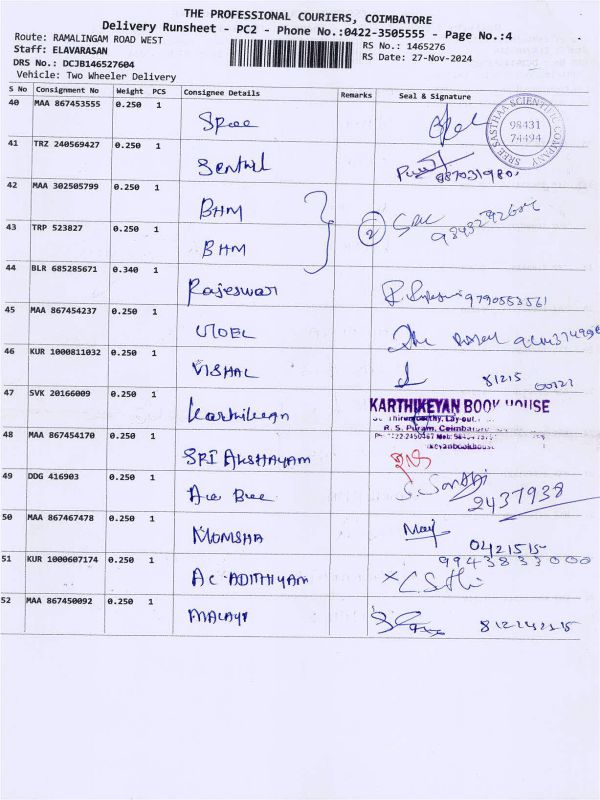 THE PROFESSIONAL COURIERS, COIMBATORE
Delivery Runsheet - PC2 - Phone No.:0422-3505555 - Page No.:4
Route: RAMALINGAM ROAD WEST
RS No.: 1465276
Staff: ELAVARASAN
RS Date: 27-Nov-2024
DRS No.: DCJB146527604
Vehicle: Two Wheeler Delivery
S No Consignment No Weight PCS Consignee Details Remarks Seal & Signature
40 MAA 867453555 0.250 1 Sree
SREE SASTHAA SCIENTIFIC COMPANY
98431
74494
41 TRZ 240569427 0.250 1 Senthil
42 MAA 302505799 0.250 1 BHM
2
43 TRP 523827 0.250 1 BHM
44 BLR 685285671 0.340 1 Rajeswar 9790553561
45 MAA 867454237 0.250 1
46 KUR 1000811032 0.250 1 VISHAL 81215
47 SVK 20166009 0.250 1 Karthikeyan
KARTHIKEYAN BOOK HOUSE
R. S. Puram, Coimbatore
48 MAA 867454170 0.250 1 SRI AKSHAYAM
49 DDG 416903 0.250 1 2437938
50 MAA 867467478 0.250 1 MOMSHA
0421515
51 KUR 1000607174 0.250 1 AC ADITHIYAM
9943833000
52 MAA 867450092 0.250 1 MALAYI